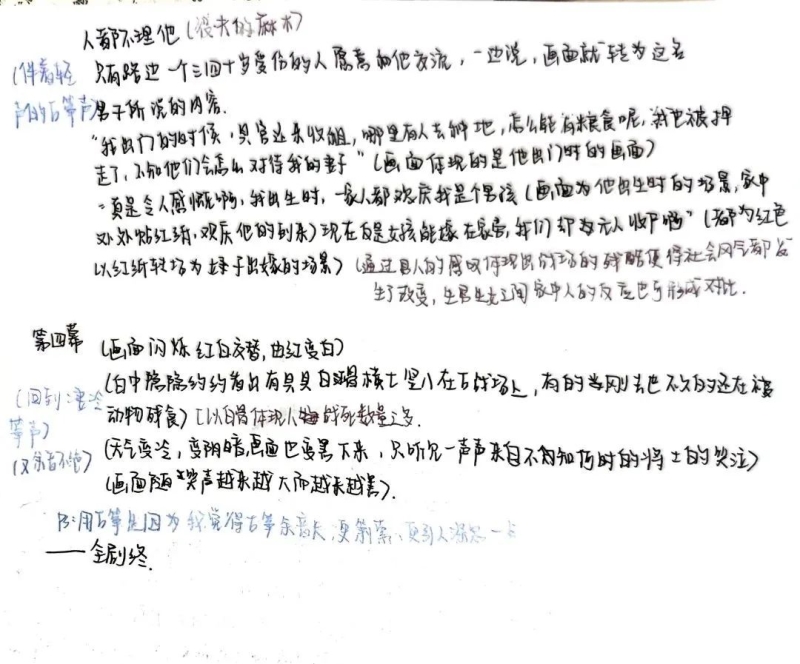 人都不理他（役夫的麻木）
（伴着轻声的古筝声）
只有路边一个三四十岁受伤的人愿意和他交流，一边说，画面就转为这名
男子所说的内容.
"我出门的时候，县官还来收租，哪里有人去种地，怎么能有粮食呢，我也被押
走了，不知他们会怎么对待我的妻子"（画面体现的是他出门时的画面）
"真是令人感慨啊，我出生时，一家人都欢庆我是个男孩（画面为他出生时的场景，家中
处处贴红纸，欢庆他的到来）现在女孩能嫁在家旁，我们却为无人收尸啊"（都为红色
以红纸转场为妻子出嫁的场景）（通过男人的体现出战场的残酷使得社会风气都发
生了改变，生男生女之间家中人的反应也形成对比.
第四幕
（画面闪烁红白交替，由红变白）
（白中隐隐约约看出有具具白骨横七竖八在古战场上，有的半刚去世不久的还在被
（回到凄冷筝声）
动物残食）（以白骨体现人战死数量之多.
（哭声不绝）
（天气变冷，变阴暗，画面也变黑下来，只听见一声声来自不知何时的将士的哭泣）
（画面随哭声越来越大而越来越黑）.
PS:用古筝是因为我觉得古筝余音长，更萧索、更引人深思一点
——全剧终.